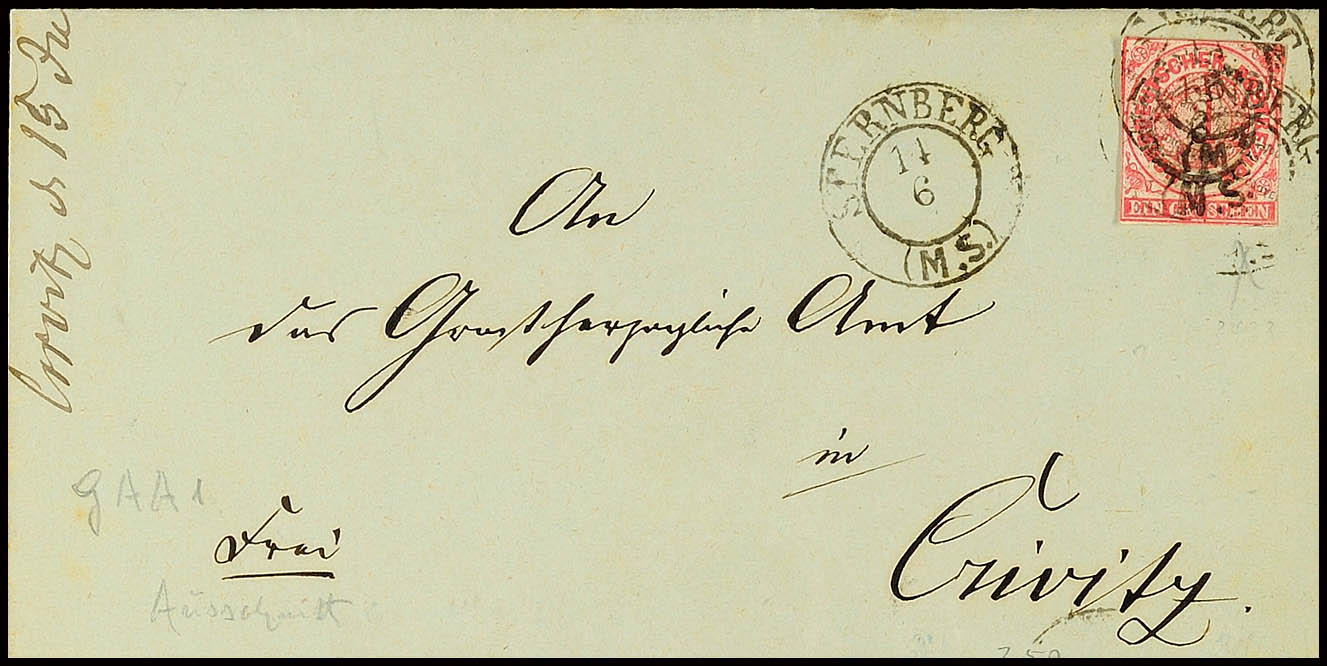 STERNBERG
14
6
(M.S.)
NORDDEUTSCHER POSTBEZIRK
EIN GROSCHEN
An
das Großherzogliche Amt
in
Crivitz.
Frei
GAA1
Ausschnitt